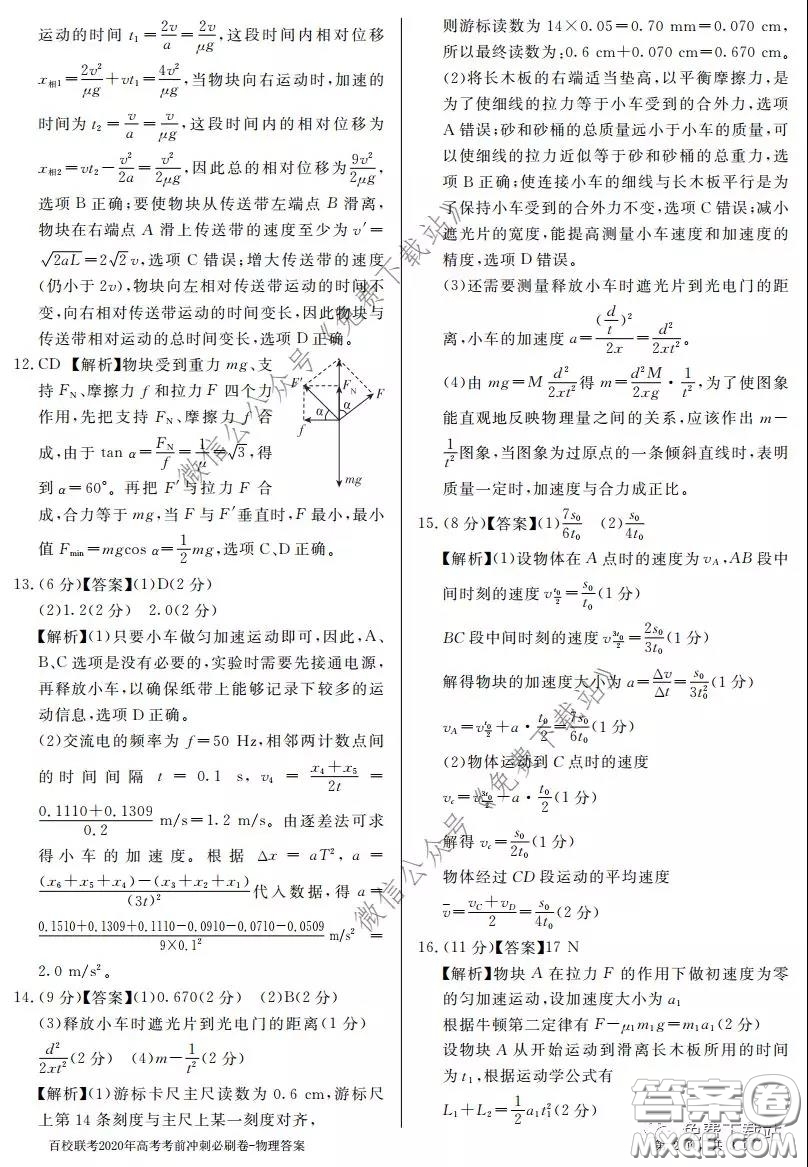 运动的时间 t₁=2v/a=2v/μg,这段时间内相对位移
x相1=2v²/μg+vt₁=4v²/μg,当物块向右运动时,加速的
时间为 t₂=v/a=v/μg,这段时间内的相对位移为
x相2=vt₂-v²/2a=v²/2μg,因此总的相对位移为9v²/2μg,
选项 B 正确;要使物块从传送带左端点 B 滑离,
物块在右端点 A 滑上传送带的速度至少为 v′=
√2aL=2√2v,选项 C 错误;增大传送带的速度
(仍小于 2v),物块向左相对传送带运动的时间不
变,向右相对传送带运动的时间变长,因此物块与
传送带相对运动的总时间变长,选项 D 正确。
12.CD 【解析】物块受到重力 mg、支
持 FN、摩擦力 f 和拉力 F 四个力
作用,先把支持 FN、摩擦力 f 合
成,由于 tan α=FN/f=1/μ=√3,得
到 α=60°。再把 F′与拉力 F 合
成,合力等于 mg,当 F 与 F′垂直时,F 最小,最小
值 Fmin=mgcos α=1/2mg,选项 C、D 正确。
F′
FN
F
α
α
f
mg
13.(6 分)【答案】(1)D(2 分)
(2)1.2(2 分) 2.0(2 分)
【解析】(1)只要小车做匀加速运动即可,因此,A、
B、C 选项是没有必要的,实验时需要先接通电源,
再释放小车,以确保纸带上能够记录下较多的运
动信息,选项 D 正确。
(2)交流电的频率为 f=50 Hz,相邻两计数点间
的时间间隔 t = 0.1 s, v₄ = (x₄+x₅)/2t =
(0.1110+0.1309)/0.2 m/s=1.2 m/s。由逐差法可求
得小车的加速度。根据 Δx = aT², a =
((x₆+x₅+x₄)-(x₃+x₂+x₁))/(3t)²代入数据,得 a=
(0.1510+0.1309+0.1110-0.0910-0.0710-0.0509)/(9×0.1²) m/s² =
2.0 m/s²。
14.(9 分)【答案】(1)0.670(2 分) (2)B(2 分)
(3)释放小车时遮光片到光电门的距离(1 分)
d²/2xt²(2 分) (4)m-1/t²(2 分)
【解析】(1)游标卡尺主尺读数为 0.6 cm,游标尺
上第 14 条刻度与主尺上某一刻度对齐,
则游标读数为 14×0.05=0.70 mm=0.070 cm,
所以最终读数为:0.6 cm+0.070 cm=0.670 cm。
(2)将长木板的右端适当垫高,以平衡摩擦力,是
为了使细线的拉力等于小车受到的合外力,选项
A 错误;砂和砂桶的总质量远小于小车的质量,可
以使细线的拉力近似等于砂和砂桶的总重力,选
项 B 正确;使连接小车的细线与长木板平行是为
了保持小车受到的合外力不变,选项 C 错误;减小
遮光片的宽度,能提高测量小车速度和加速度的
精度,选项 D 错误。
(3)还需要测量释放小车时遮光片到光电门的距
离,小车的加速度 a=(d/t)²/2x=d²/2xt²。
(4)由 mg=M d²/2xt²得 m=d²M/2xg·1/t²,为了使图象
能直观地反映物理量之间的关系,应该作出 m-
1/t²图象,当图象为过原点的一条倾斜直线时,表明
质量一定时,加速度与合力成正比。
15.(8 分)【答案】(1)7s₀/6t₀ (2)s₀/4t₀
【解析】(1)设物体在 A 点时的速度为 vA,AB 段中
间时刻的速度 v t₀/2=s₀/t₀(1 分)
BC 段中间时刻的速度 v 3t₀/2=2s₀/3t₀(1 分)
解得物块的加速度大小为 a=Δv/Δt=s₀/3t₀²(1 分)
vA=v t₀/2+a·t₀/2=7s₀/6t₀(1 分)
(2)物体运动到 C 点时的速度
vc=v 3t₀/2+a·t₀/2(1 分)
解得 vc=s₀/2t₀(1 分)
物体经过 CD 段运动的平均速度
v̄=(vC+vD)/2=s₀/4t₀(2 分)
16.(11 分)【答案】17 N
【解析】物块 A 在拉力 F 的作用下做初速度为零
的匀加速运动,设加速度大小为 a₁
根据牛顿第二定律有 F-μ₁m₁g=m₁a₁(2 分)
设物块 A 从开始运动到滑离长木板所用的时间
为 t₁,根据运动学公式有
L₁+L₂=1/2a₁t₁²(2 分)
百校联考2020年高考考前冲刺必刷卷-物理答案
微信公众号《免费下载站》
微信公众号《免费下载站》
答案圈